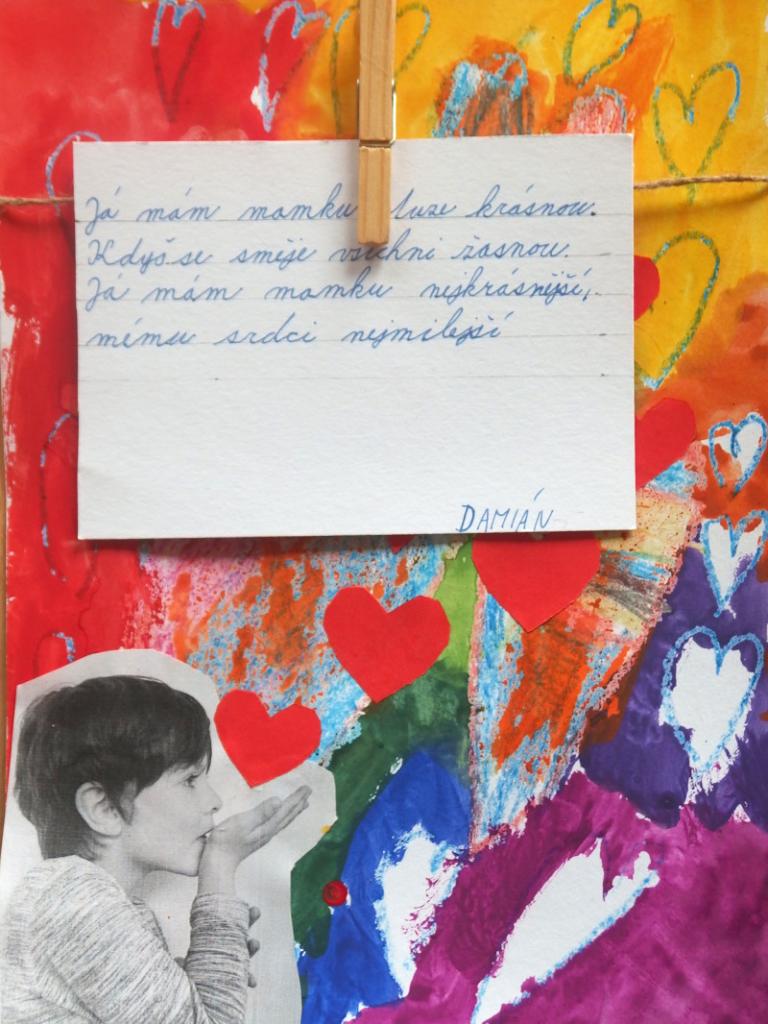 Já mám mamku tuze krásnou.
Když se směje všichni žasnou.
Já mám mamku nejkrásnější,
mému srdci nejmilejší
DAMIÁN